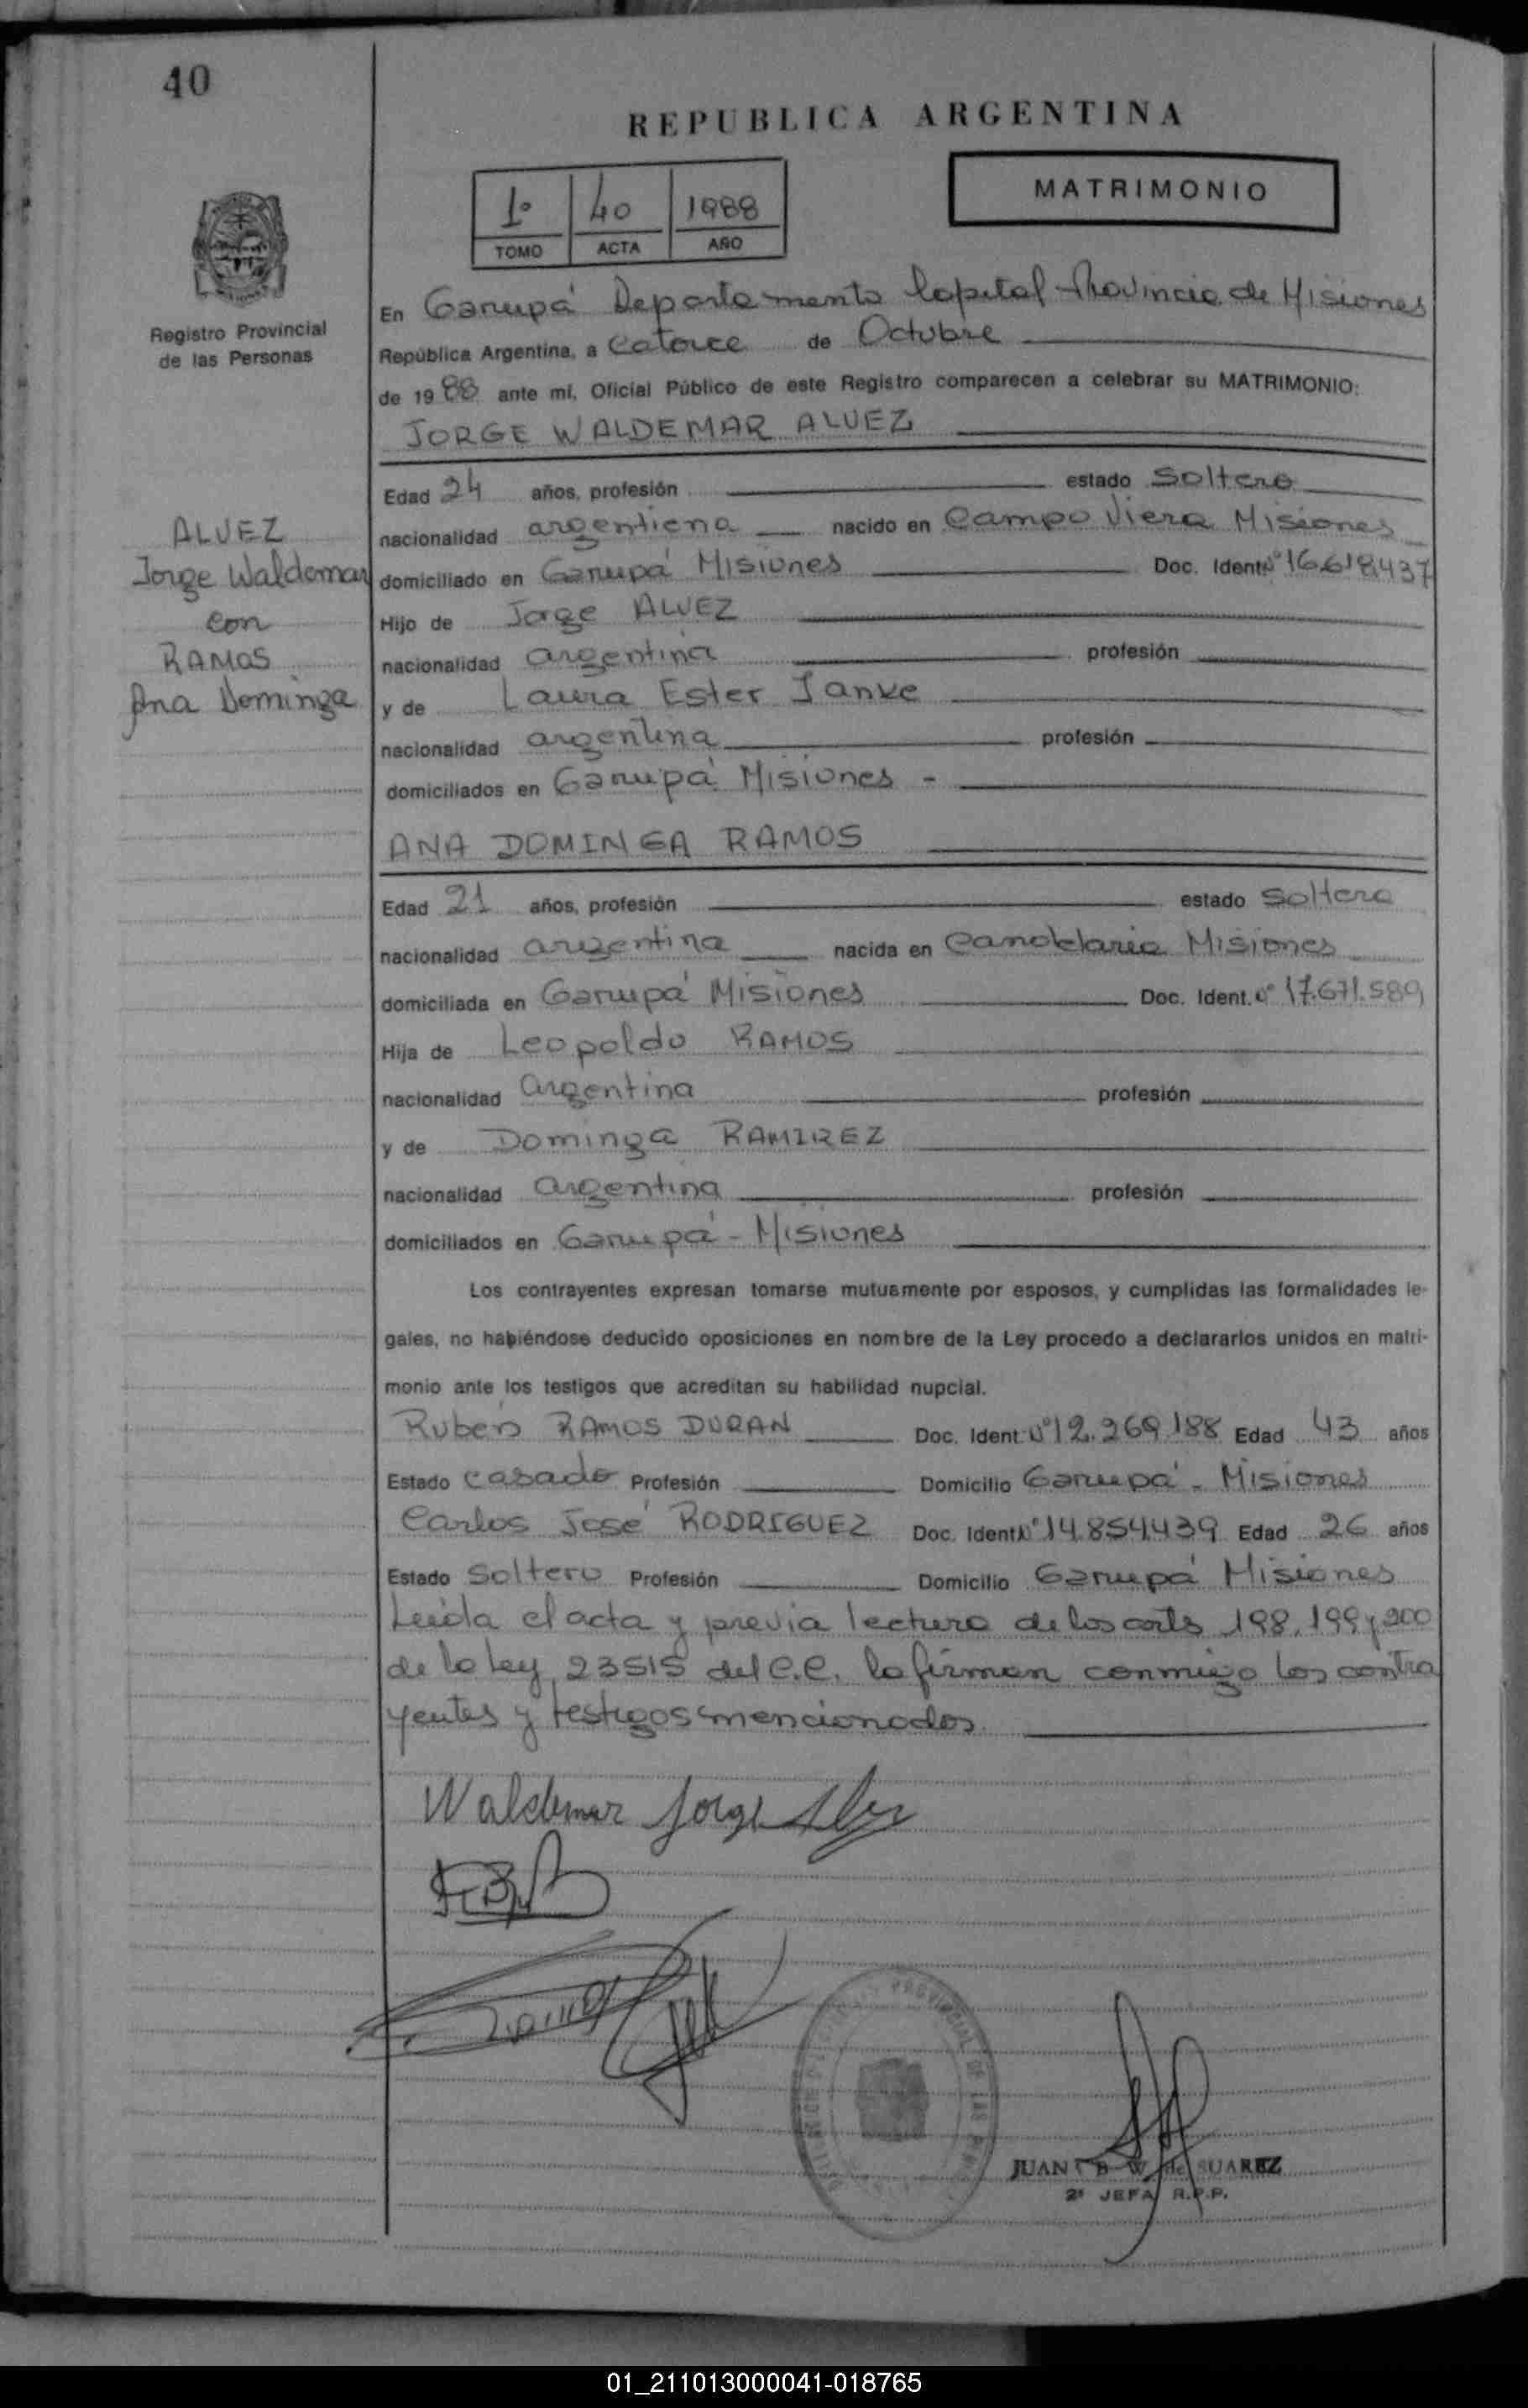 40
REPUBLICA ARGENTINA
MATRIMONIO
1º 40 1988
TOMO ACTA AÑO
Registro Provincial
de las Personas
En Garupá Departamento Capital Provincia de Misiones
República Argentina, a Catorce de Octubre
de 1988 ante mí, Oficial Público de este Registro comparecen a celebrar su MATRIMONIO:
JORGE WALDEMAR ALVEZ
Edad 24 años, profesión estado Soltero
ALVEZ
Jorge Waldemar
con
RAMOS
Ana Dominga
nacionalidad argentiena nacido en Campo Viera Misiones
domiciliado en Garupá Misiones Doc. Ident. Nº 16.618.437
Hijo de Jorge ALVEZ
nacionalidad argentina profesión
y de Laura Ester Janke
nacionalidad argentina profesión
domiciliados en Garupá Misiones -
ANA DOMINGA RAMOS
Edad 21 años, profesión estado Soltera
nacionalidad argentina nacida en Candelaria Misiones
domiciliada en Garupá Misiones Doc. Ident. Nº 17.671.589
Hija de Leopoldo RAMOS
nacionalidad argentina profesión
y de Dominga RAMIREZ
nacionalidad argentina profesión
domiciliados en Garupá - Misiones
Los contrayentes expresan tomarse mutuamente por esposos, y cumplidas las formalidades le-
gales, no habiéndose deducido oposiciones en nombre de la Ley procedo a declararlos unidos en matri-
monio ante los testigos que acreditan su habilidad nupcial.
Ruben RAMOS DURAN Doc. Ident. Nº 12.269.188 Edad 43 años
Estado Casado Profesión Domicilio Garupá - Misiones
Carlos José RODRIGUEZ Doc. Ident. Nº 14.854.439 Edad 26 años
Estado Soltero Profesión Domicilio Garupá Misiones
Leída el acta y previa lectura de los arts 198, 199 y 200
de la ley 23515 del C.C. la firman conmigo los contra
yentes y testigos mencionados.
Waldemar Jorge Alvez
PROVINCIAL DE LAS
JUANA B W de SUAREZ
2ª JEFA R.P.P.
01_211013000041-018765